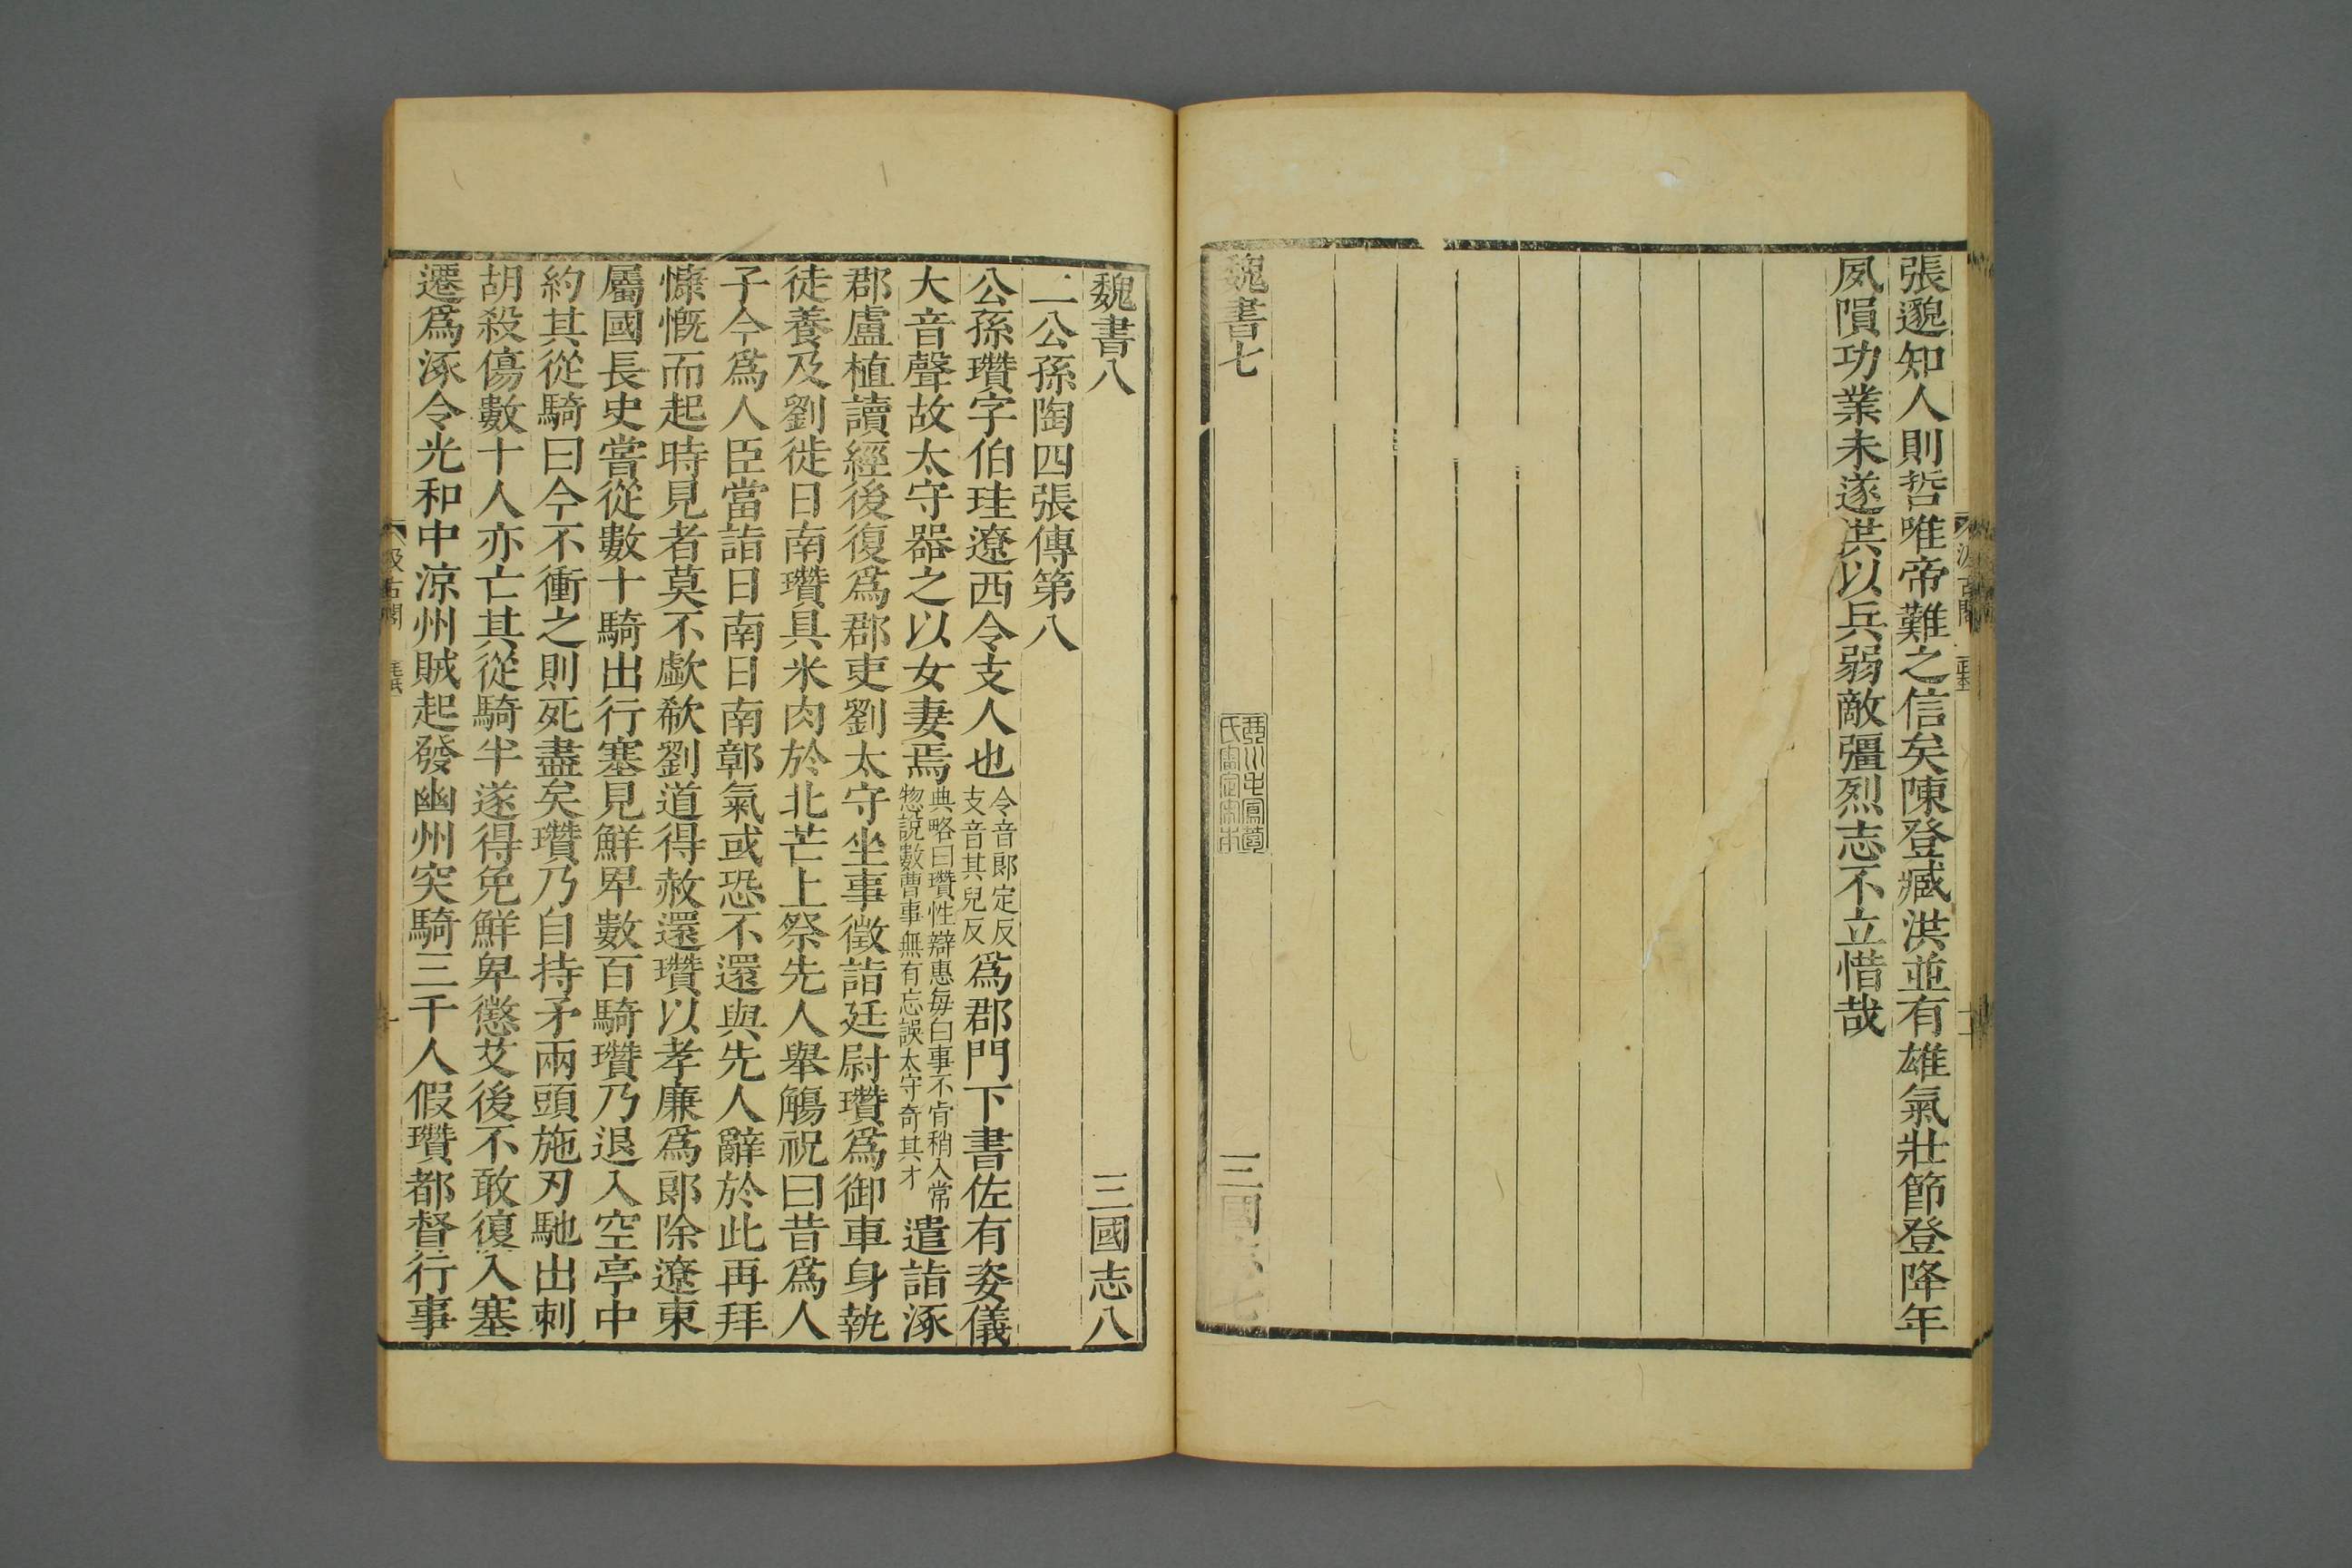 張邈知人則哲唯帝難之信矣陳登臧洪並有雄氣壯節登降年
夙隕功業未遂洪以兵弱敵彊烈志不立惜哉
魏書七
三國志七
魏書八
三國志八
二公孫陶四張傳第八
公孫瓚字伯珪遼西令支人也令音郎定反支音其兒反爲郡門下書佐有姿儀
大音聲故太守器之以女妻焉典略曰瓚性辯惠每白事不肯稍入常惣說數曹事無有忘誤太守奇其才遣詣涿
郡盧植讀經後復爲郡吏劉太守坐事徵詣廷尉瓚爲御車身執
徒養及劉徙日南瓚具米肉於北芒上祭先人舉觴祝曰昔爲人
子今爲人臣當詣日南日南鄣氣或恐不還與先人辭於此再拜
慷慨而起時見者莫不歔欷劉道得赦還瓚以孝廉爲郎除遼東
屬國長史嘗從數十騎出行塞見鮮卑數百騎瓚乃退入空亭中
約其從騎曰今不衝之則死盡矣瓚乃自持矛兩頭施刃馳出刺
胡殺傷數十人亦亡其從騎半遂得免鮮卑懲艾後不敢復入塞
遷爲涿令光和中涼州賊起發幽州突騎三千人假瓚都督行事
汲古閣